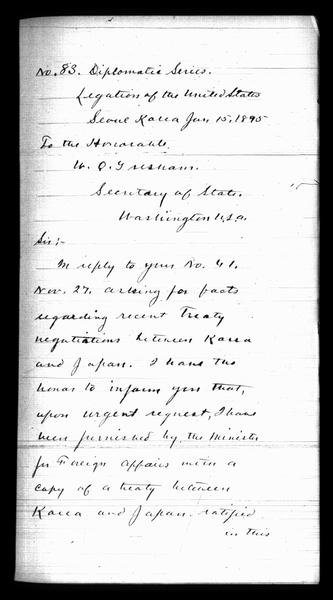 No. 83. Diplomatic Series.
Legation of the United States
Seoul Korea Jan 15, 1895
To the Honorable
W. Q. Gresham.
Secretary of State.
Washington U.S.a.
Sir:-
In reply to your No. 41.
Nov. 27. asking for facts
regarding recent Treaty
negotiations between Korea
and Japan. I have the
honor to inform you that,
upon urgent request, I have
been furnished by the Minister
for Foreign affairs with a
copy of a treaty between
Korea and Japan. ratified
in this